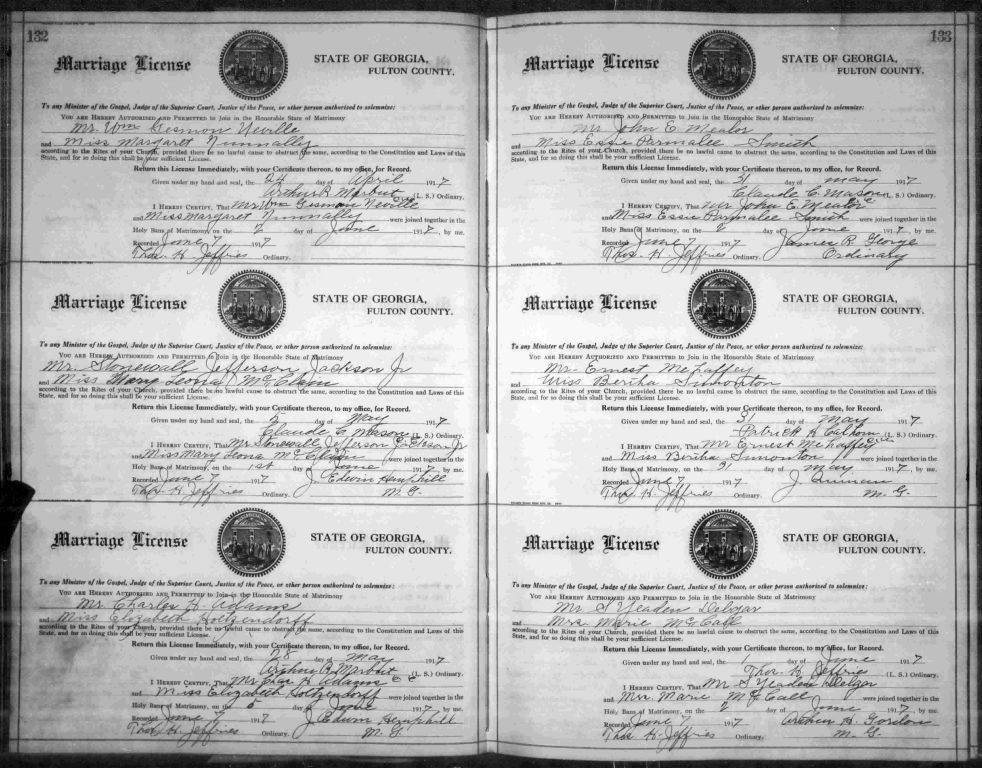 132
Marriage License
STATE OF GEORGIA,
FULTON COUNTY.
To any Minister of the Gospel, Judge of the Superior Court, Justice of the Peace, or other person authorized to solemnize:
YOU ARE HEREBY AUTHORIZED AND PERMITTED to Join in the Honorable State of Matrimony
Mr. Wm Gesmon Neville
and Miss Margaret Nunnally
according to the Rites of your Church, provided there be no lawful cause to obstruct the same, according to the Constitution and Laws of this
State, and for so doing this shall be your sufficient License.
Return this License Immediately, with your Certificate thereon, to my office, for Record.
Given under my hand and seal, the 24 day of April 1917
Arthur R. Marbut (L. S.) Ordinary.
I HEREBY CERTIFY, That Mr Wm Gesmon Neville
and Miss Margaret Nunnally were joined together in the
Holy Bans of Matrimony, on the 2 day of June 1917, by me.
Recorded June 7 1917
Thos. H. Jeffries Ordinary.
Marriage License
STATE OF GEORGIA,
FULTON COUNTY.
To any Minister of the Gospel, Judge of the Superior Court, Justice of the Peace, or other person authorized to solemnize:
YOU ARE HEREBY AUTHORIZED AND PERMITTED to Join in the Honorable State of Matrimony
Mr. Stonewall Jefferson Jackson Jr
and Miss Mary Leona
according to the Rites of your Church, provided there be no lawful cause to obstruct the same, according to the Constitution and Laws of this
State, and for so doing this shall be your sufficient License.
Return this License Immediately, with your Certificate thereon, to my office, for Record.
Given under my hand and seal, the 2 day of May 1917
Claude C. Mason (L. S.) Ordinary.
I HEREBY CERTIFY, That Mr Stonewall Jefferson Jackson Jr
and Miss Mary Leona were joined together in the
Holy Bans of Matrimony, on the 1st day of June 1917, by me.
Recorded June 7 1917 J Edwin Hemphill
Thos. H. Jeffries Ordinary. M. G.
Marriage License
STATE OF GEORGIA,
FULTON COUNTY.
To any Minister of the Gospel, Judge of the Superior Court, Justice of the Peace, or other person authorized to solemnize:
YOU ARE HEREBY AUTHORIZED AND PERMITTED to Join in the Honorable State of Matrimony
Mr. Charles H. Adams
and Miss Elizabeth Holtzendorff
according to the Rites of your Church, provided there be no lawful cause to obstruct the same, according to the Constitution and Laws of this
State, and for so doing this shall be your sufficient License.
Return this License Immediately, with your Certificate thereon, to my office, for Record.
Given under my hand and seal, the 28 day of May 1917
Arthur R. Marbut (L. S.) Ordinary.
I HEREBY CERTIFY, That Mr Chas H. Adams
and Miss Elizabeth Holtzendorff were joined together in the
Holy Bans of Matrimony, on the 5 day of June 1917, by me.
Recorded June 7 1917 J Edwin Hemphill
Thos. H. Jeffries Ordinary. M. G.
133
Marriage License
STATE OF GEORGIA,
FULTON COUNTY.
To any Minister of the Gospel, Judge of the Superior Court, Justice of the Peace, or other person authorized to solemnize:
YOU ARE HEREBY AUTHORIZED AND PERMITTED to Join in the Honorable State of Matrimony
Mr John E. Mealor
and Miss Essie Parmalee Smith
according to the Rites of your Church, provided there be no lawful cause to obstruct the same, according to the Constitution and Laws of this
State, and for so doing this shall be your sufficient License.
Return this License Immediately, with your Certificate thereon, to my office, for Record.
Given under my hand and seal, the 31 day of May 1917
Claude C. Mason (L. S.) Ordinary.
I HEREBY CERTIFY, That Mr John E. Mealor
and Miss Essie Parmalee Smith were joined together in the
Holy Bans of Matrimony, on the 2 day of June 1917, by me.
Recorded June 7 1917 James R. George
Thos. H. Jeffries Ordinary. Ordinary
Marriage License
STATE OF GEORGIA,
FULTON COUNTY.
To any Minister of the Gospel, Judge of the Superior Court, Justice of the Peace, or other person authorized to solemnize:
YOU ARE HEREBY AUTHORIZED AND PERMITTED to Join in the Honorable State of Matrimony
Mr. Ernest Mehaffey
and Miss Bertha Simonton
according to the Rites of your Church, provided there be no lawful cause to obstruct the same, according to the Constitution and Laws of this
State, and for so doing this shall be your sufficient License.
Return this License Immediately, with your Certificate thereon, to my office, for Record.
Given under my hand and seal, the 31 day of May 1917
Patrick H. Calhoun (L. S.) Ordinary.
I HEREBY CERTIFY, That Mr Ernest Mehaffey
and Miss Bertha Simonton were joined together in the
Holy Bans of Matrimony, on the 31 day of May 1917, by me.
Recorded June 7 1917 J.
Thos. H. Jeffries Ordinary. M. G.
Marriage License
STATE OF GEORGIA,
FULTON COUNTY.
To any Minister of the Gospel, Judge of the Superior Court, Justice of the Peace, or other person authorized to solemnize:
YOU ARE HEREBY AUTHORIZED AND PERMITTED to Join in the Honorable State of Matrimony
Mr. S Yeaden
and Mrs. Marie McCall
according to the Rites of your Church, provided there be no lawful cause to obstruct the same, according to the Constitution and Laws of this
State, and for so doing this shall be your sufficient License.
Return this License Immediately, with your Certificate thereon, to my office, for Record.
Given under my hand and seal, the 1 day of June 1917
Thos. H. Jeffries (L. S.) Ordinary.
I HEREBY CERTIFY, That Mr S Yeaden
and Mrs. Marie McCall were joined together in the
Holy Bans of Matrimony, on the 2 day of June 1917, by me.
Recorded June 7 1917 H. Gordon
Thos. H. Jeffries Ordinary. M. G.